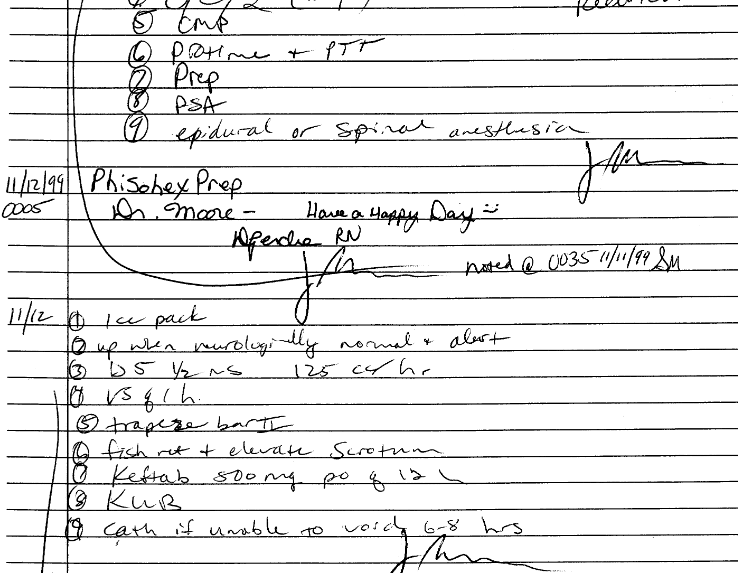 ⑤ CMP
⑥ PROtime + PTT
⑦ Prep
⑧ PSA
⑨ epidural or spinal anesthesia
11/12/99 Phisohex Prep
0005 Dr. Moore - Have a Happy Day
RN
noted @ 0035 11/11/99 SM
11/12 ① Ice pack
② up when neurologically normal + alert
③ D5 1/2 NS 125 cc/hr
④ VS q 1 h.
⑤ trapeze bar
⑥ fish net + elevate scrotum
⑦ Keftab 500 mg po q 12 h
⑧ KUB
⑨ cath if unable to void 6-8 hrs